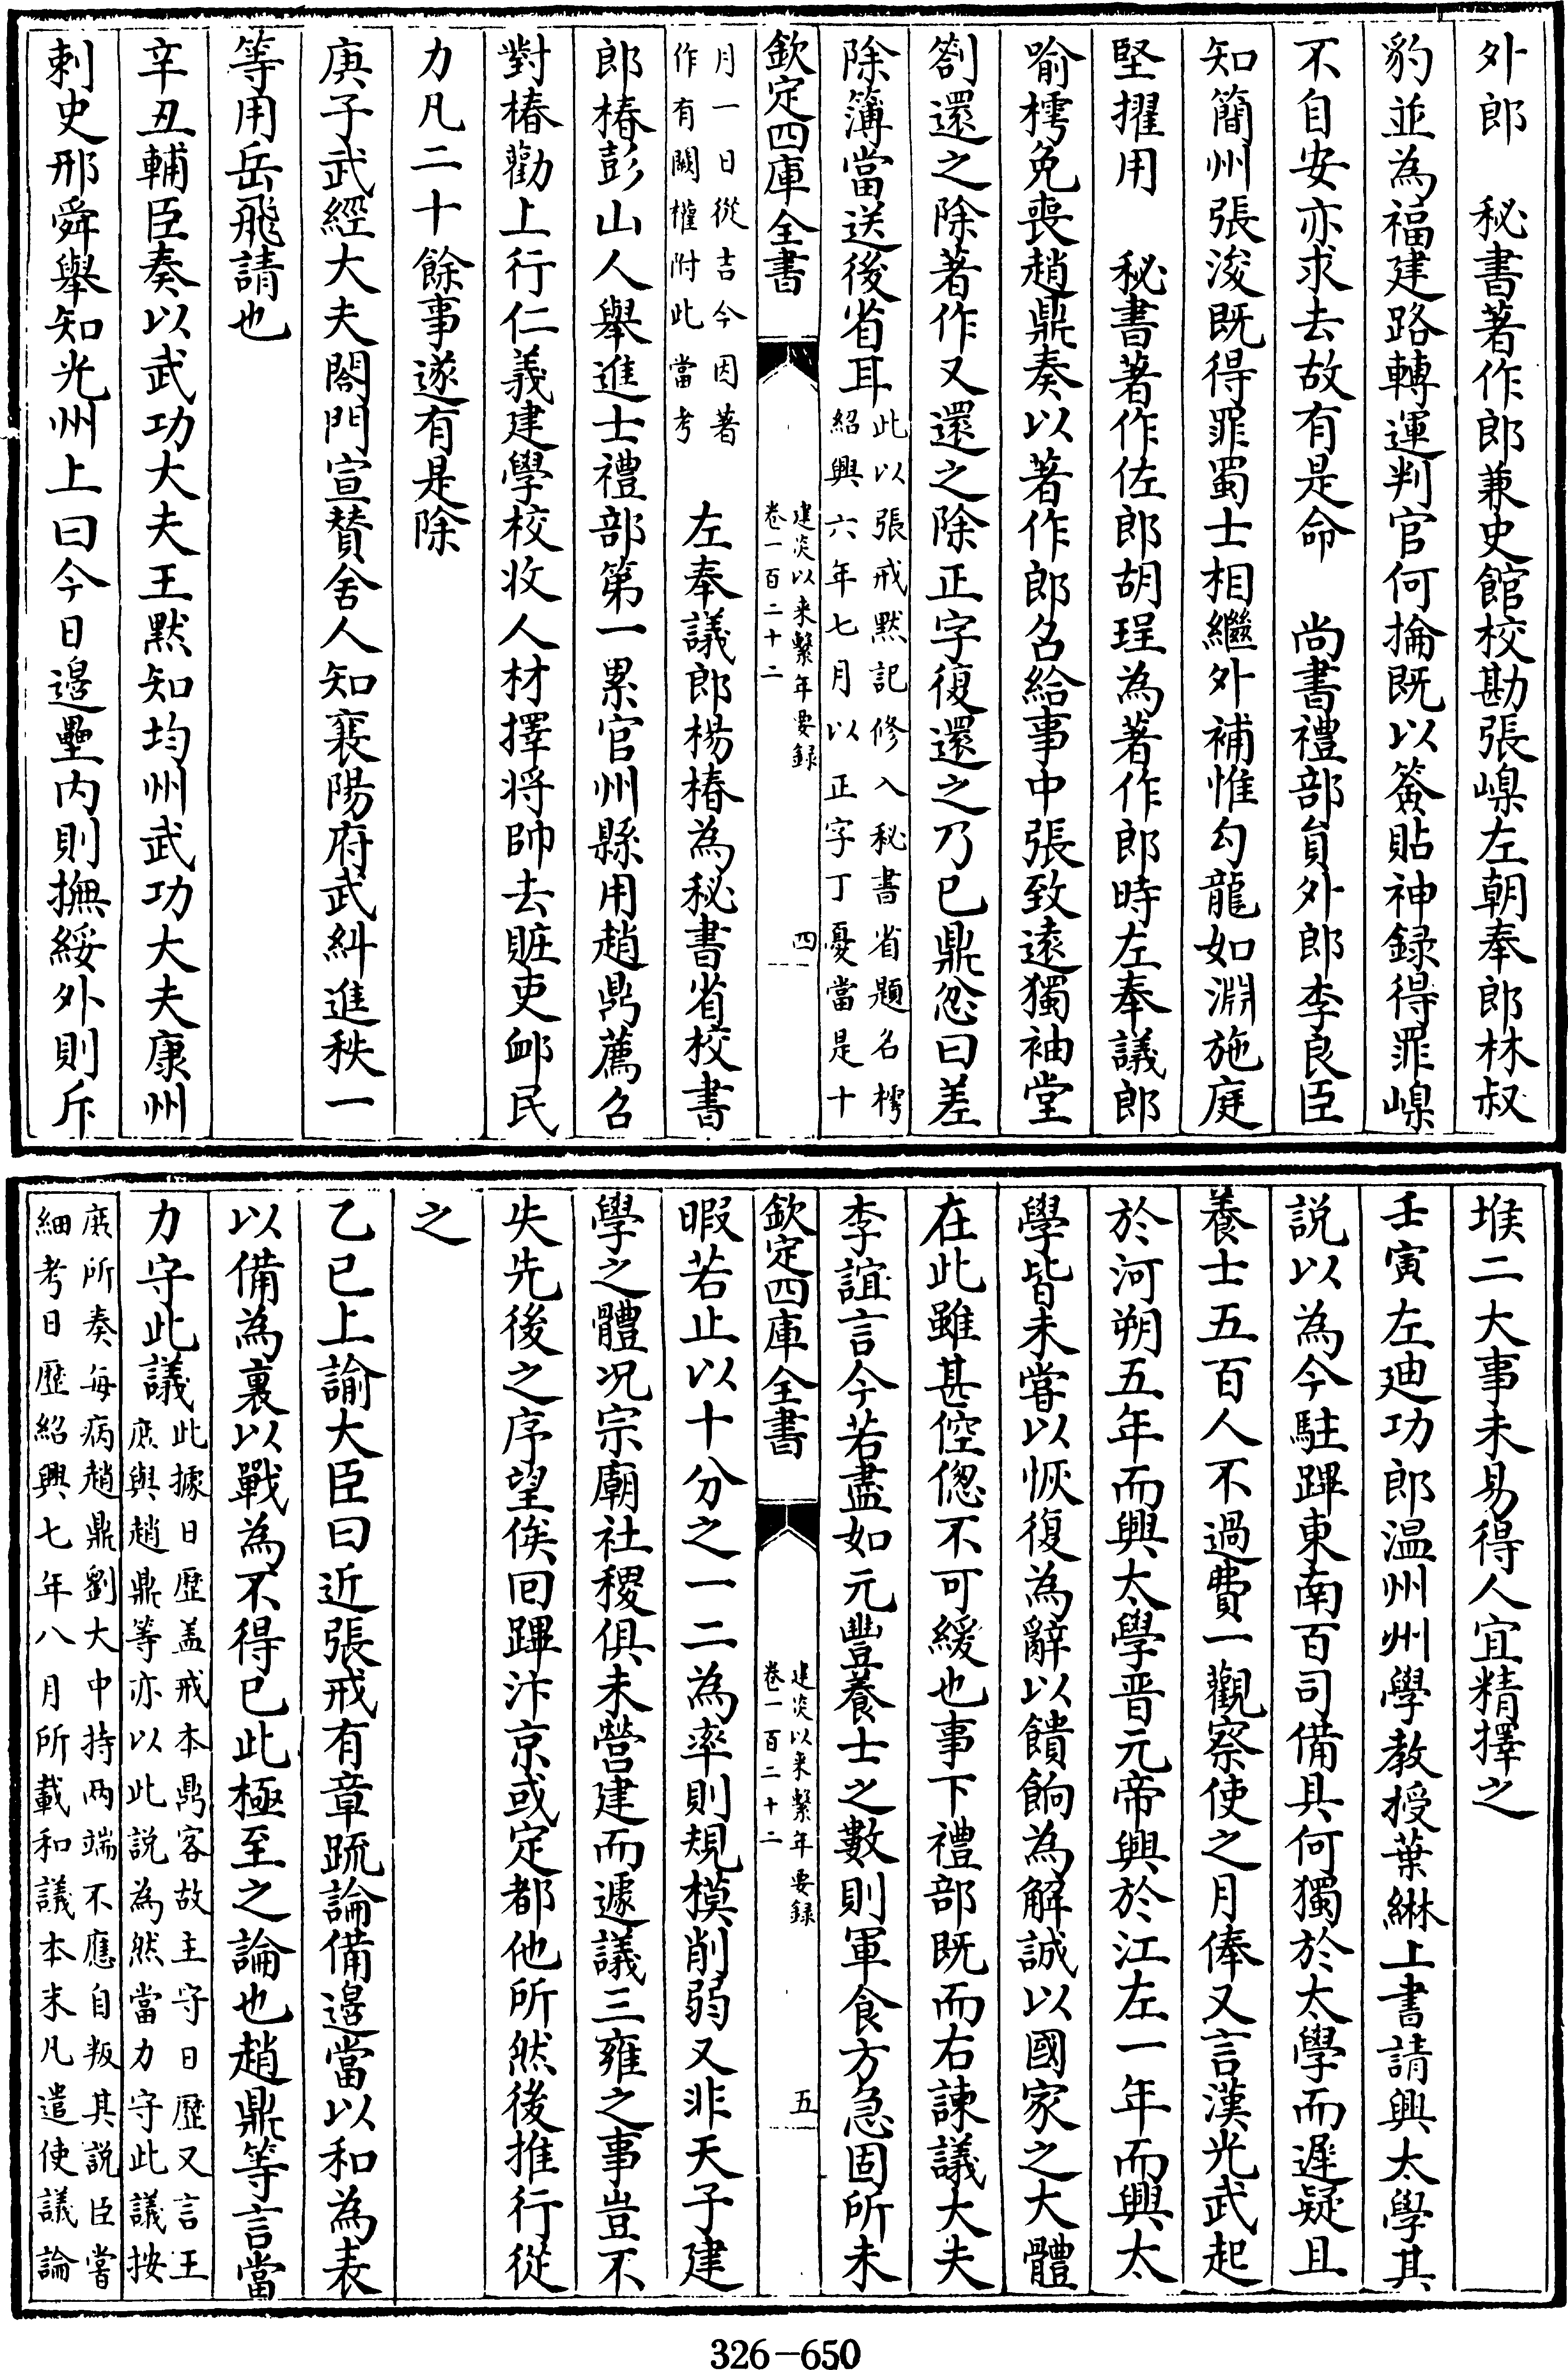 外郎　秘書著作郎兼史館校勘張嵲左朝奉郎林叔
豹並為福建路轉運判官何掄既以簽貼神録得罪嵲
不自安亦求去故有是命　尚書禮部員外郎李良臣
知簡州張浚既得罪蜀士相繼外補惟勾龍如淵施庭
堅擢用　秘書著作佐郎胡珵為著作郎時左奉議郎
喻樗免喪趙鼎奏以著作郎名給事中張致遠獨袖堂
劄還之除著作又還之除正字復還之乃已鼎忿曰差
除簿當送後省耳此以張戒默記修入秘書省題名樗
紹興六年七月以正字丁憂當是十
欽定四庫全書
建炎以来繫年要録
卷一百二十二
四
月一日從吉今因著
作有闕權附此當考
左奉議郎楊椿為秘書省校書
郎椿彭山人舉進士禮部第一累官州縣用趙鼎薦召
對椿勸上行仁義建學校收人材擇将帥去贓吏卹民
力凡二十餘事遂有是除
庚子武經大夫閤門宣賛舍人知襄陽府武糾進秩一
等用岳飛請也
辛丑輔臣奏以武功大夫王默知均州武功大夫康州
刺史邢舜舉知光州上曰今日邉壘内則撫綏外則斥
堠二大事未易得人宜精擇之
壬寅左廸功郎温州州學教授葉綝上書請興太學其
説以為今駐蹕東南百司備具何獨於太學而遲疑且
養士五百人不過費一觀察使之月俸又言漢光武起
於河朔五年而興太學晋元帝興於江左一年而興太
學皆未甞以恢復為辭以饋餉為解誠以國家之大體
在此雖甚倥偬不可緩也事下禮部既而右諫議大夫
李誼言今若盡如元豐養士之數則軍食方急固所未
欽定四庫全書
建炎以来繫年要録
卷一百二十二
五
暇若止以十分之一二為率則規模削弱又非天子建
學之體况宗廟社稷俱未營建而遽議三雍之事豈不
失先後之序望俟囘蹕汴京或定都他所然後推行從
之
乙已上諭大臣曰近張戒有章疏論備邉當以和為表
以備為裏以戰為不得已此極至之論也趙鼎等言當
力守此議此據日歴盖戒本鼎客故主守日歴又言王
庶與趙鼎等亦以此説為然當力守此議按
庶所奏每病趙鼎劉大中持两端不應自叛其説臣嘗
細考日歴紹興七年八月所載和議本末凡遣使議論
326-650